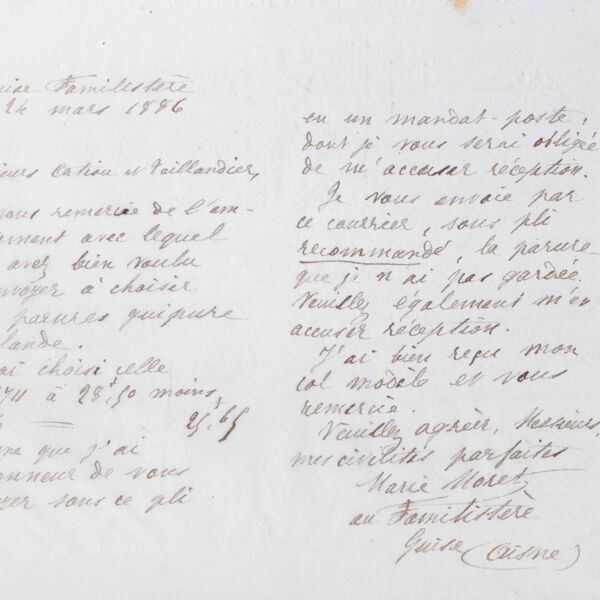 uise Familistère
24 mars 1886
ieurs Ortiou et Taillandier,
ous remercie de l'em-
ement avec lequel
avez bien voulu
nvoyer à choisir
parures guipure
lande.
ai choisi celle
711 à 28f,50 moins
25f,65
me que j'ai
onneur de vous
oyer sous ce pli
en un mandat-poste,
dont je vous serai obligée
de m'accuser réception.
Je vous envoie par
ce courrier, sous pli
recommandé, la parure
que je n'ai pas gardée.
Veuillez également m'en
accuser réception.
J'ai bien reçu mon
col modèle et vous
remercie.
Veuillez agréer, Messieurs,
mes civilités parfaites
Marie Moret
au Familistère
Guise (Aisne)